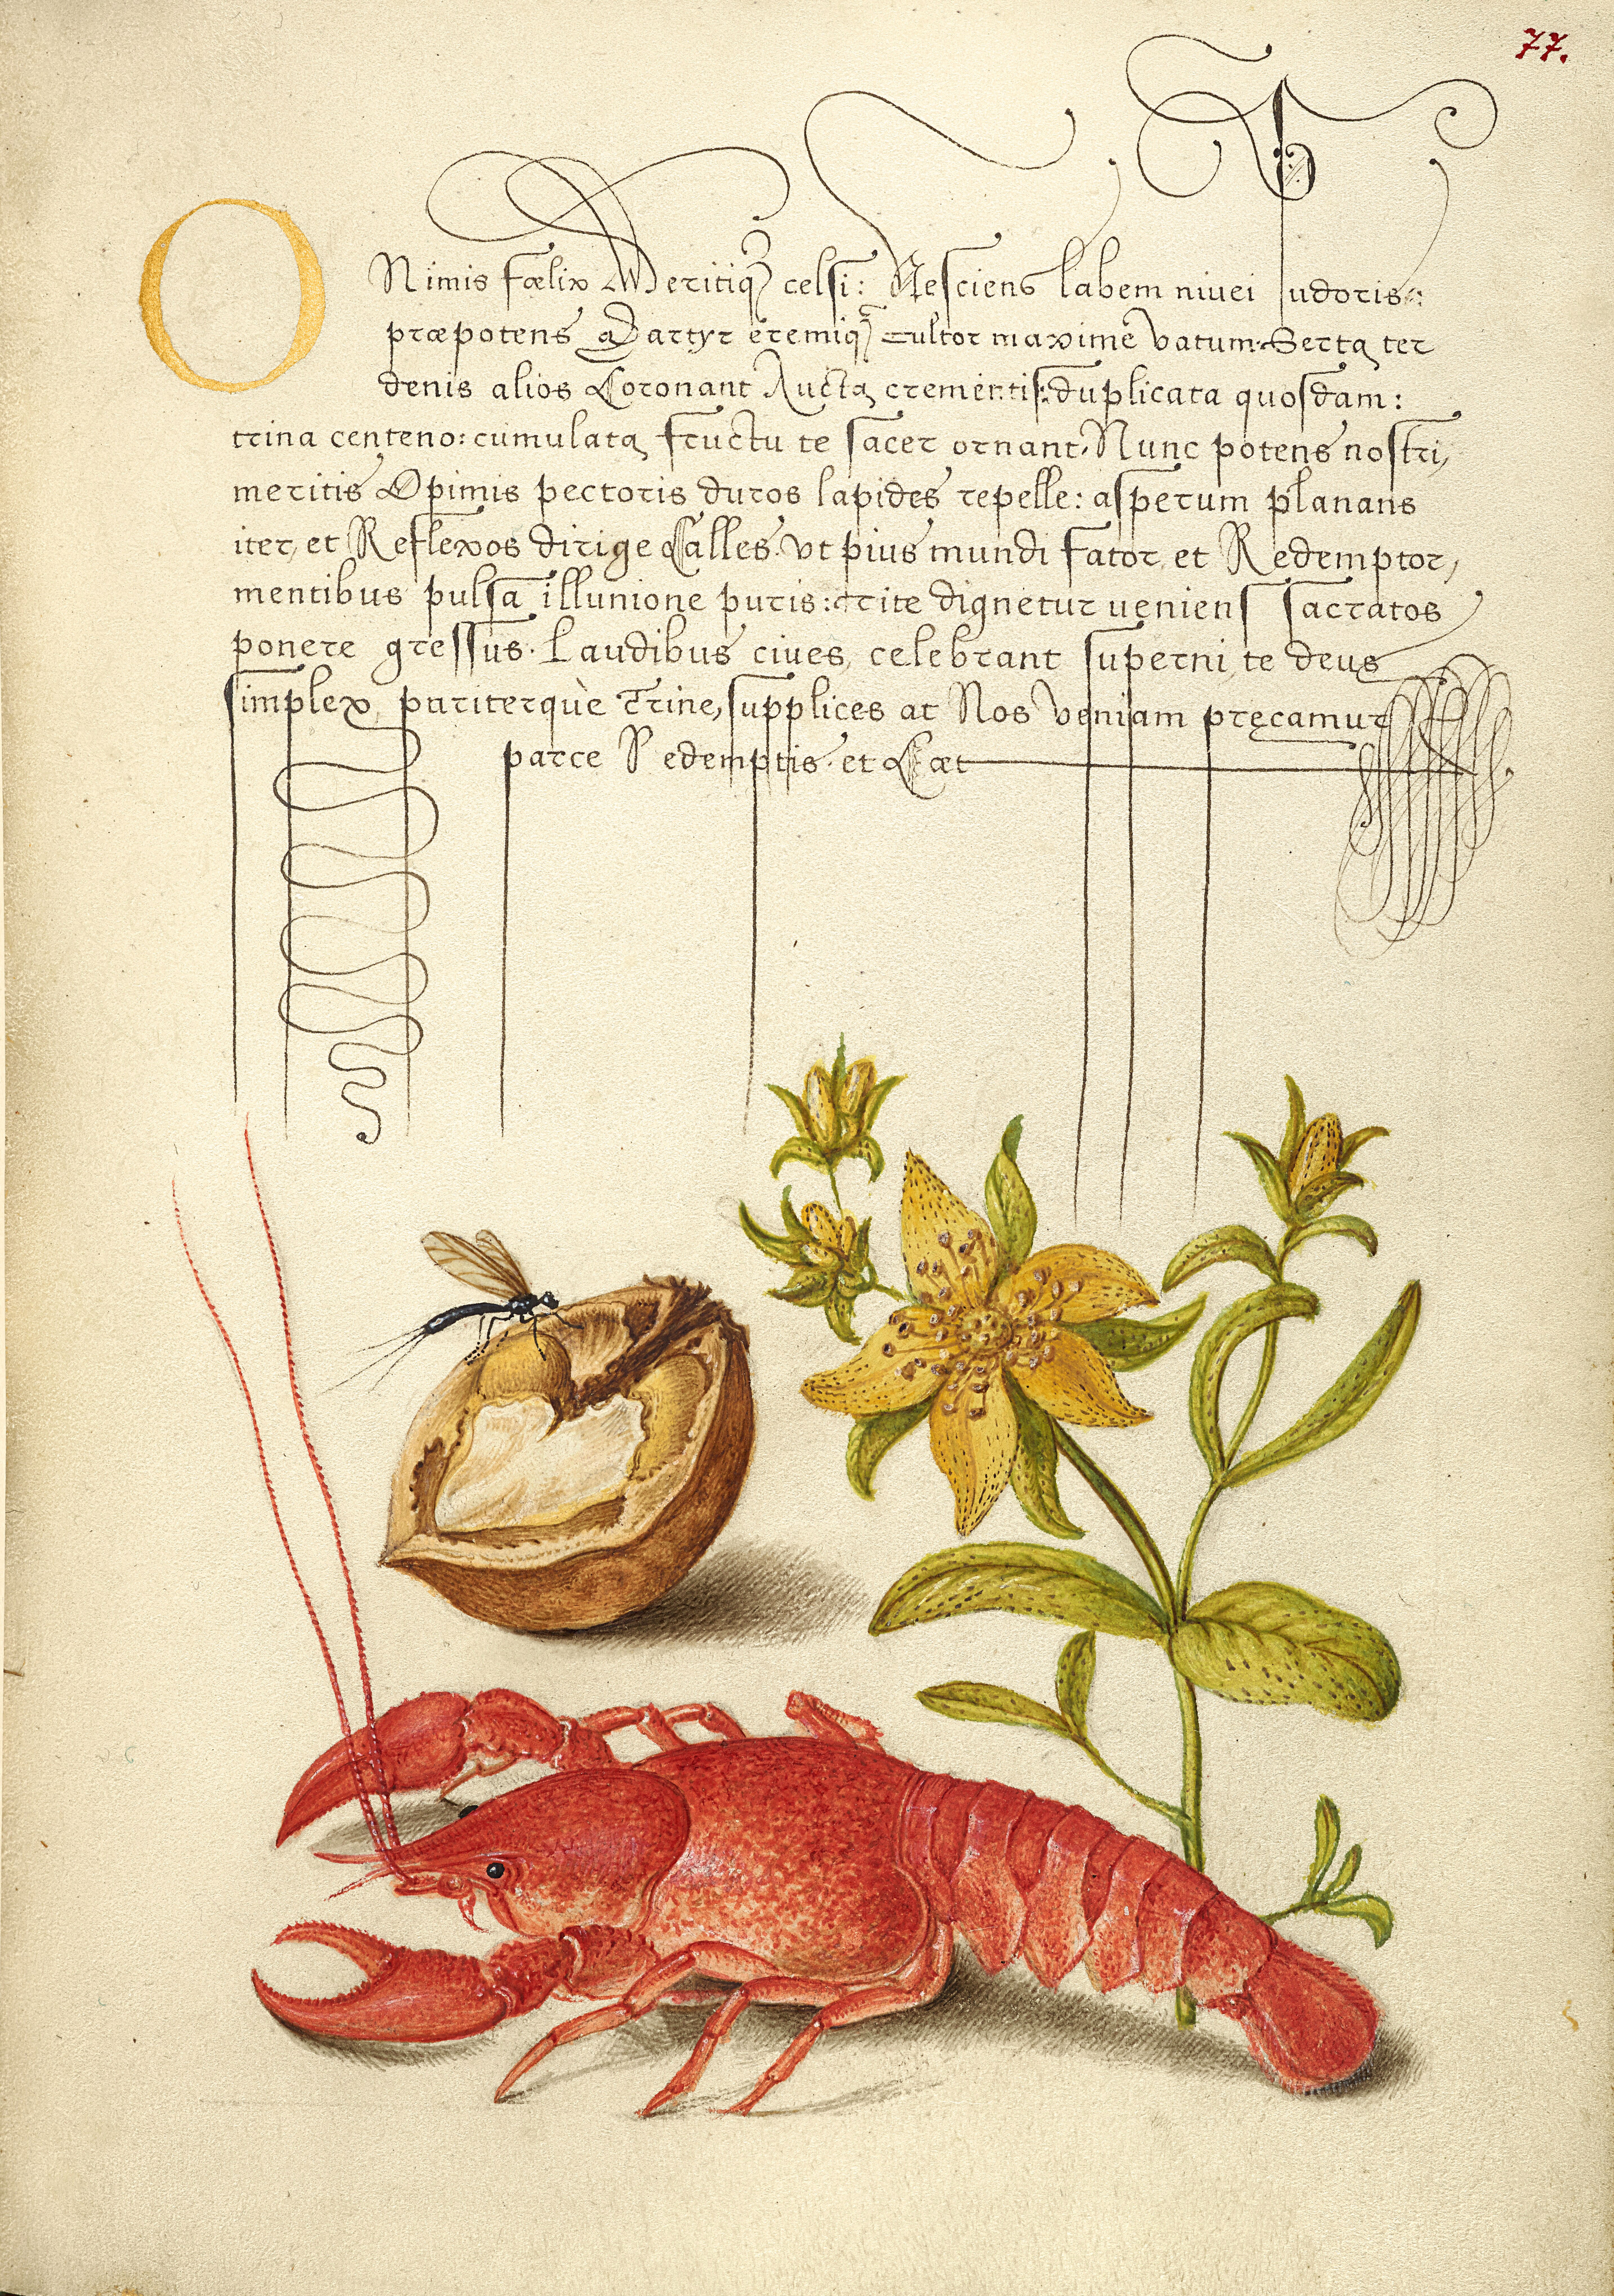 77.
O Nimis fœlix Meritiq₃ celsi: Nesciens labem niuei pudoris:
præpotens Martyr eremiq₃ cultor maxime vatum. Serta ter
denis alios Coronant Aucta crementis: duplicata quosdam:
trina centeno: cumulata fructu te sacer ornant. Nunc potens nostri,
meritis Opimis pectoris duros lapides repelle: asperum planans
iter, et Reflexos dirige Calles. vt pius mundi sator, et Redemptor,
mentibus pulsa illunione puris: rite dignetur ueniens sacratos
ponere gressus. Laudibus ciues, celebrant superni, te deus
simplex, pariterquè Trine, supplices at Nos veniam pręcamur
parce Redemptis. et Cæt